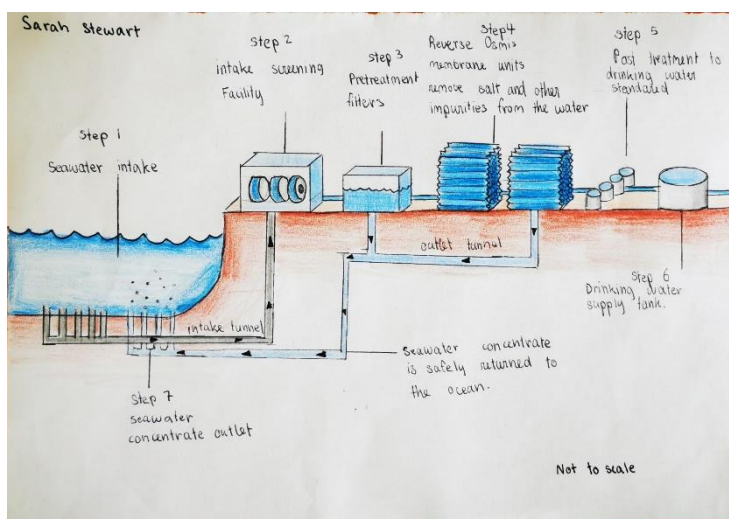 Sarah Stewart
Step 1
Seawater intake
Step 2
intake screening
Facility
Step 3
Pretreatment
filters
Step4
Reverse Osmis
membrane units
remove salt and other
impurities from the water
Step 5
Post treatment to
drinking water
standard
Step 6
Drinking water
supply tank.
outlet tunnel
intake tunnel
Seawater concentrate
is safely returned to
the ocean.
Step 7
seawater
concentrate outlet
Not to scale